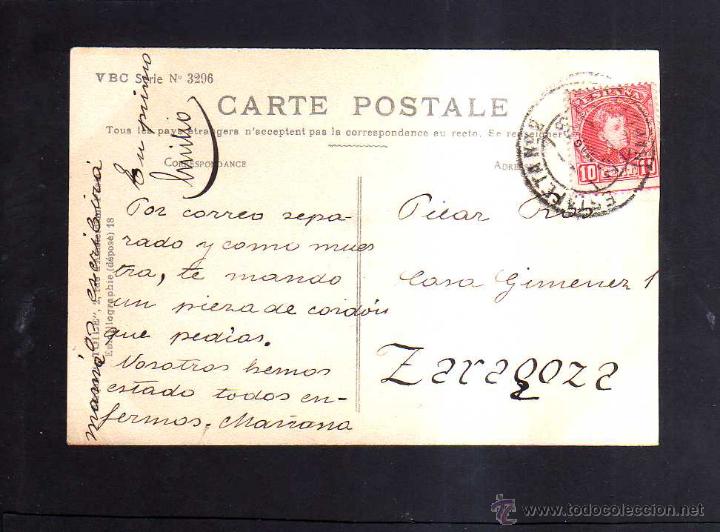 VBC Série Nº 3296
CARTE POSTALE
Tous les pays étrangers n'acceptent pas la correspondance au recto. Se renseigner
CORRESPONDANCE
ESPAÑA
10
Por correo sepa-
rado y como mues
tra, te mando
un pieza de cordón
que pedías.
Vosotros hemos
estado todos en-
fermos. Mañana
mamá escribirá
Tu primo
Emilio
Pilar
Casa Gimenez 1
Zaragoza
(déposé) 18
© www.todocoleccion.net